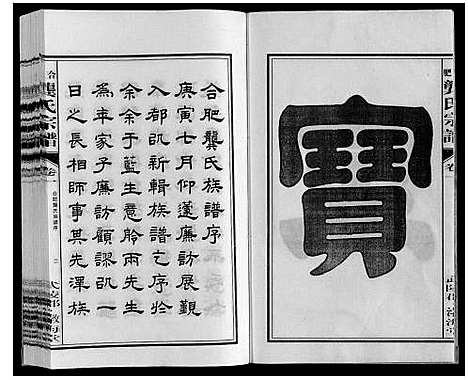 寶
合肥龔氏族譜序
庚寅七月仰蘧廉訪展覲
入都凯新輯族譜之序於
余余于藍生意舲兩先生
為年家子廉訪顧謬以一
日之長相師事其先澤族
合肥
龔氏宗譜
卷一
龔氏宗譜
卷